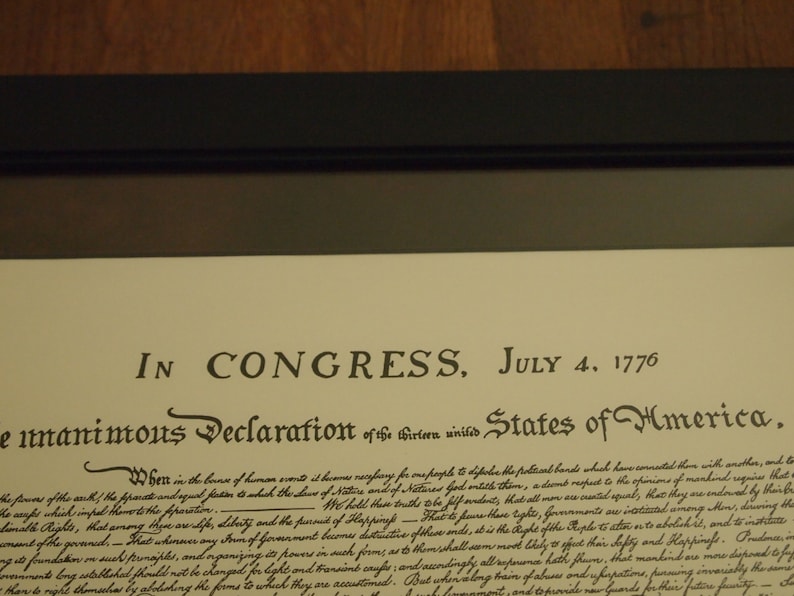 In CONGRESS, July 4, 1776
e unanimous Declaration of the thirteen united States of America.
When in the Course of human events it becomes necessary for one people to dissolve the political bands which have connected them with another, and to
the powers of the earth, the separate and equal station to which the Laws of Nature and of Nature's God entitle them, a decent respect to the opinions of mankind requires that
the causes which impel them to the separation. We hold these truths to be self evident, that all men are created equal, that they are endowed by their
alienable Rights, that among these are Life, Liberty and the pursuit of Happiness — That to secure these rights, Governments are instituted among Men, deriving
consent of the governed, — That whenever any Form of Government becomes destructive of these ends, it is the Right of the People to alter or to abolish it, and to institute
ng its foundation on such principles, and organizing its powers in such form, as to them shall seem most likely to effect their Safety and Happiness. Prudence, in
overnments long established should not be changed for light and transient causes; and accordingly all experience hath shewn, that mankind are more disposed to
than to right themselves by abolishing the forms to which they are accustomed. But when a long train of abuses and usurpations, pursuing invariably the same
such Government, and to provide new Guards for their future security. —